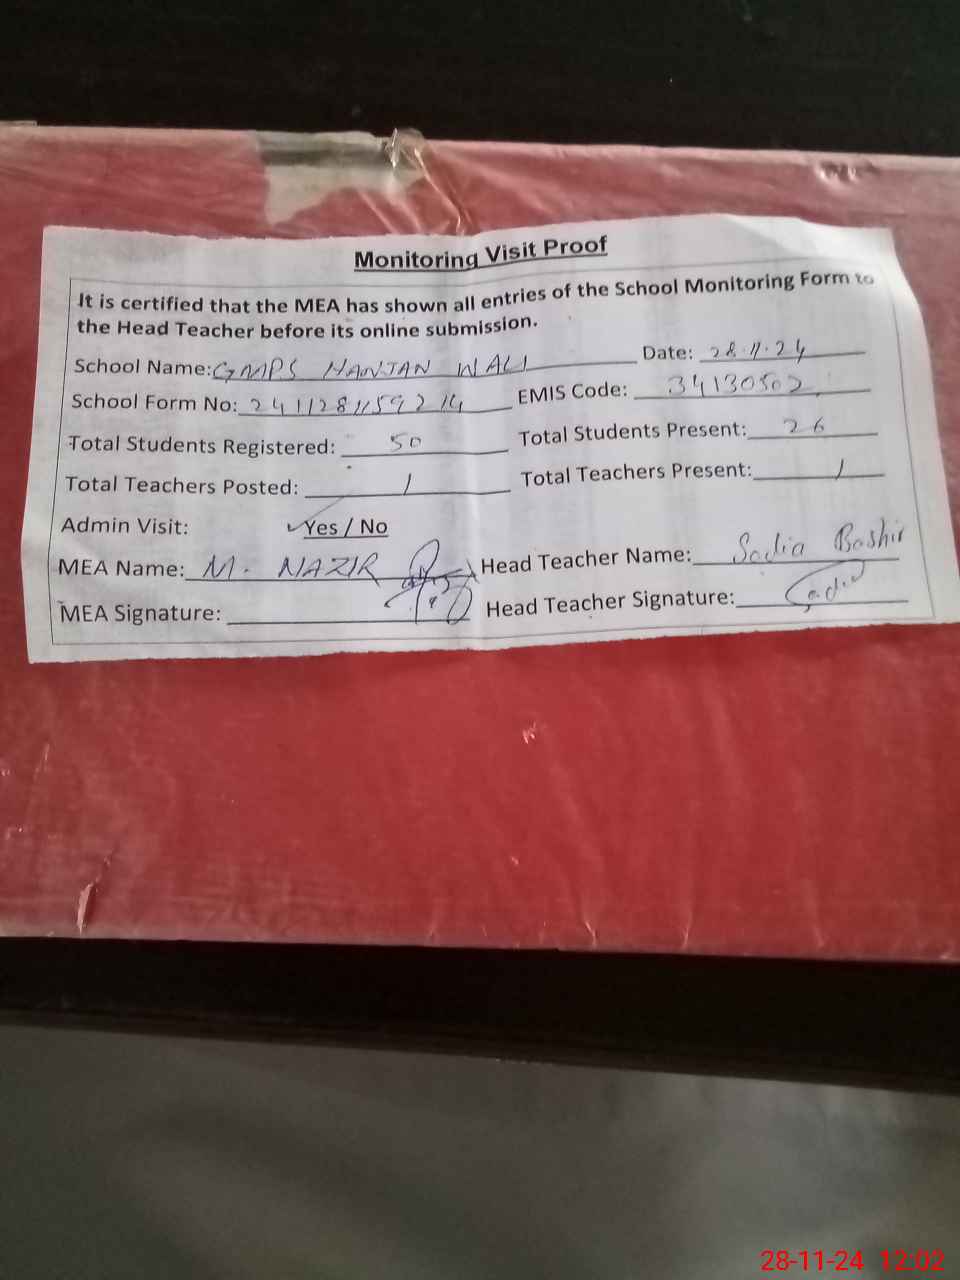 Monitoring Visit Proof
It is certified that the MEA has shown all entries of the School Monitoring Form to
the Head Teacher before its online submission.
School Name: GMPS HANJAN WALI Date: 28.11.24
School Form No: 2411281159214 EMIS Code: 34130502
Total Students Registered: 50 Total Students Present: 26
Total Teachers Posted: 1 Total Teachers Present: 1
Admin Visit: Yes / No
MEA Name: M. NAZIR Head Teacher Name: Sadia Bashir
MEA Signature: Head Teacher Signature: Sadia
28-11-24 12:02